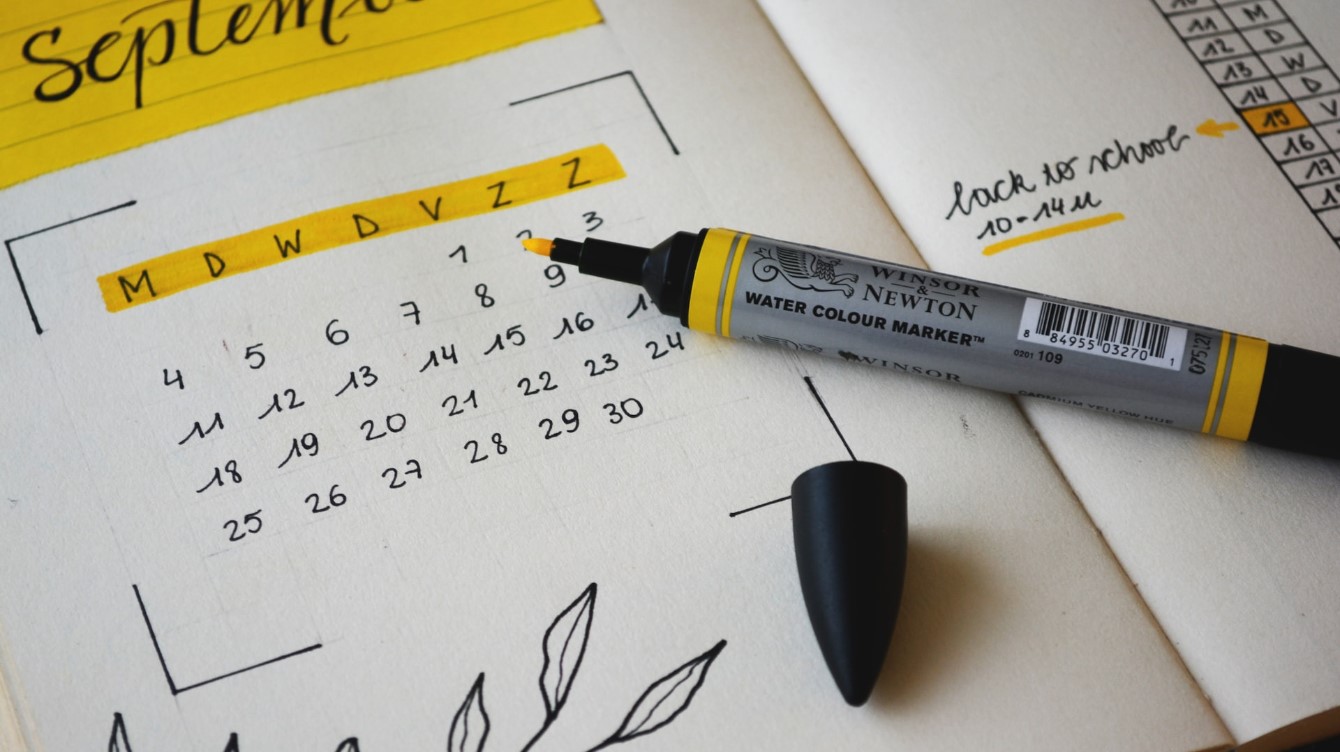 M D W D V Z Z
1 3
4 5 6 7 8 9
11 12 13 14 15 16
18 19 20 21 22 23 24
25 26 27 28 29 30
back to school
10-14u
11 M
12 D
13 W
14 D
15 V
16
17
WINSOR
&
NEWTON
WATER COLOUR MARKER™
8 84955 03270 1
0201 109
WINSOR
CADMIUM YELLOW HUE